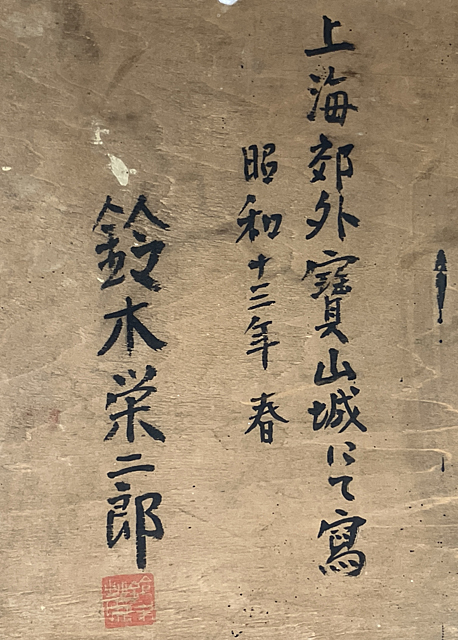 上海郊外寶山城にて寫
昭和十三年 春
鈴木栄二郎